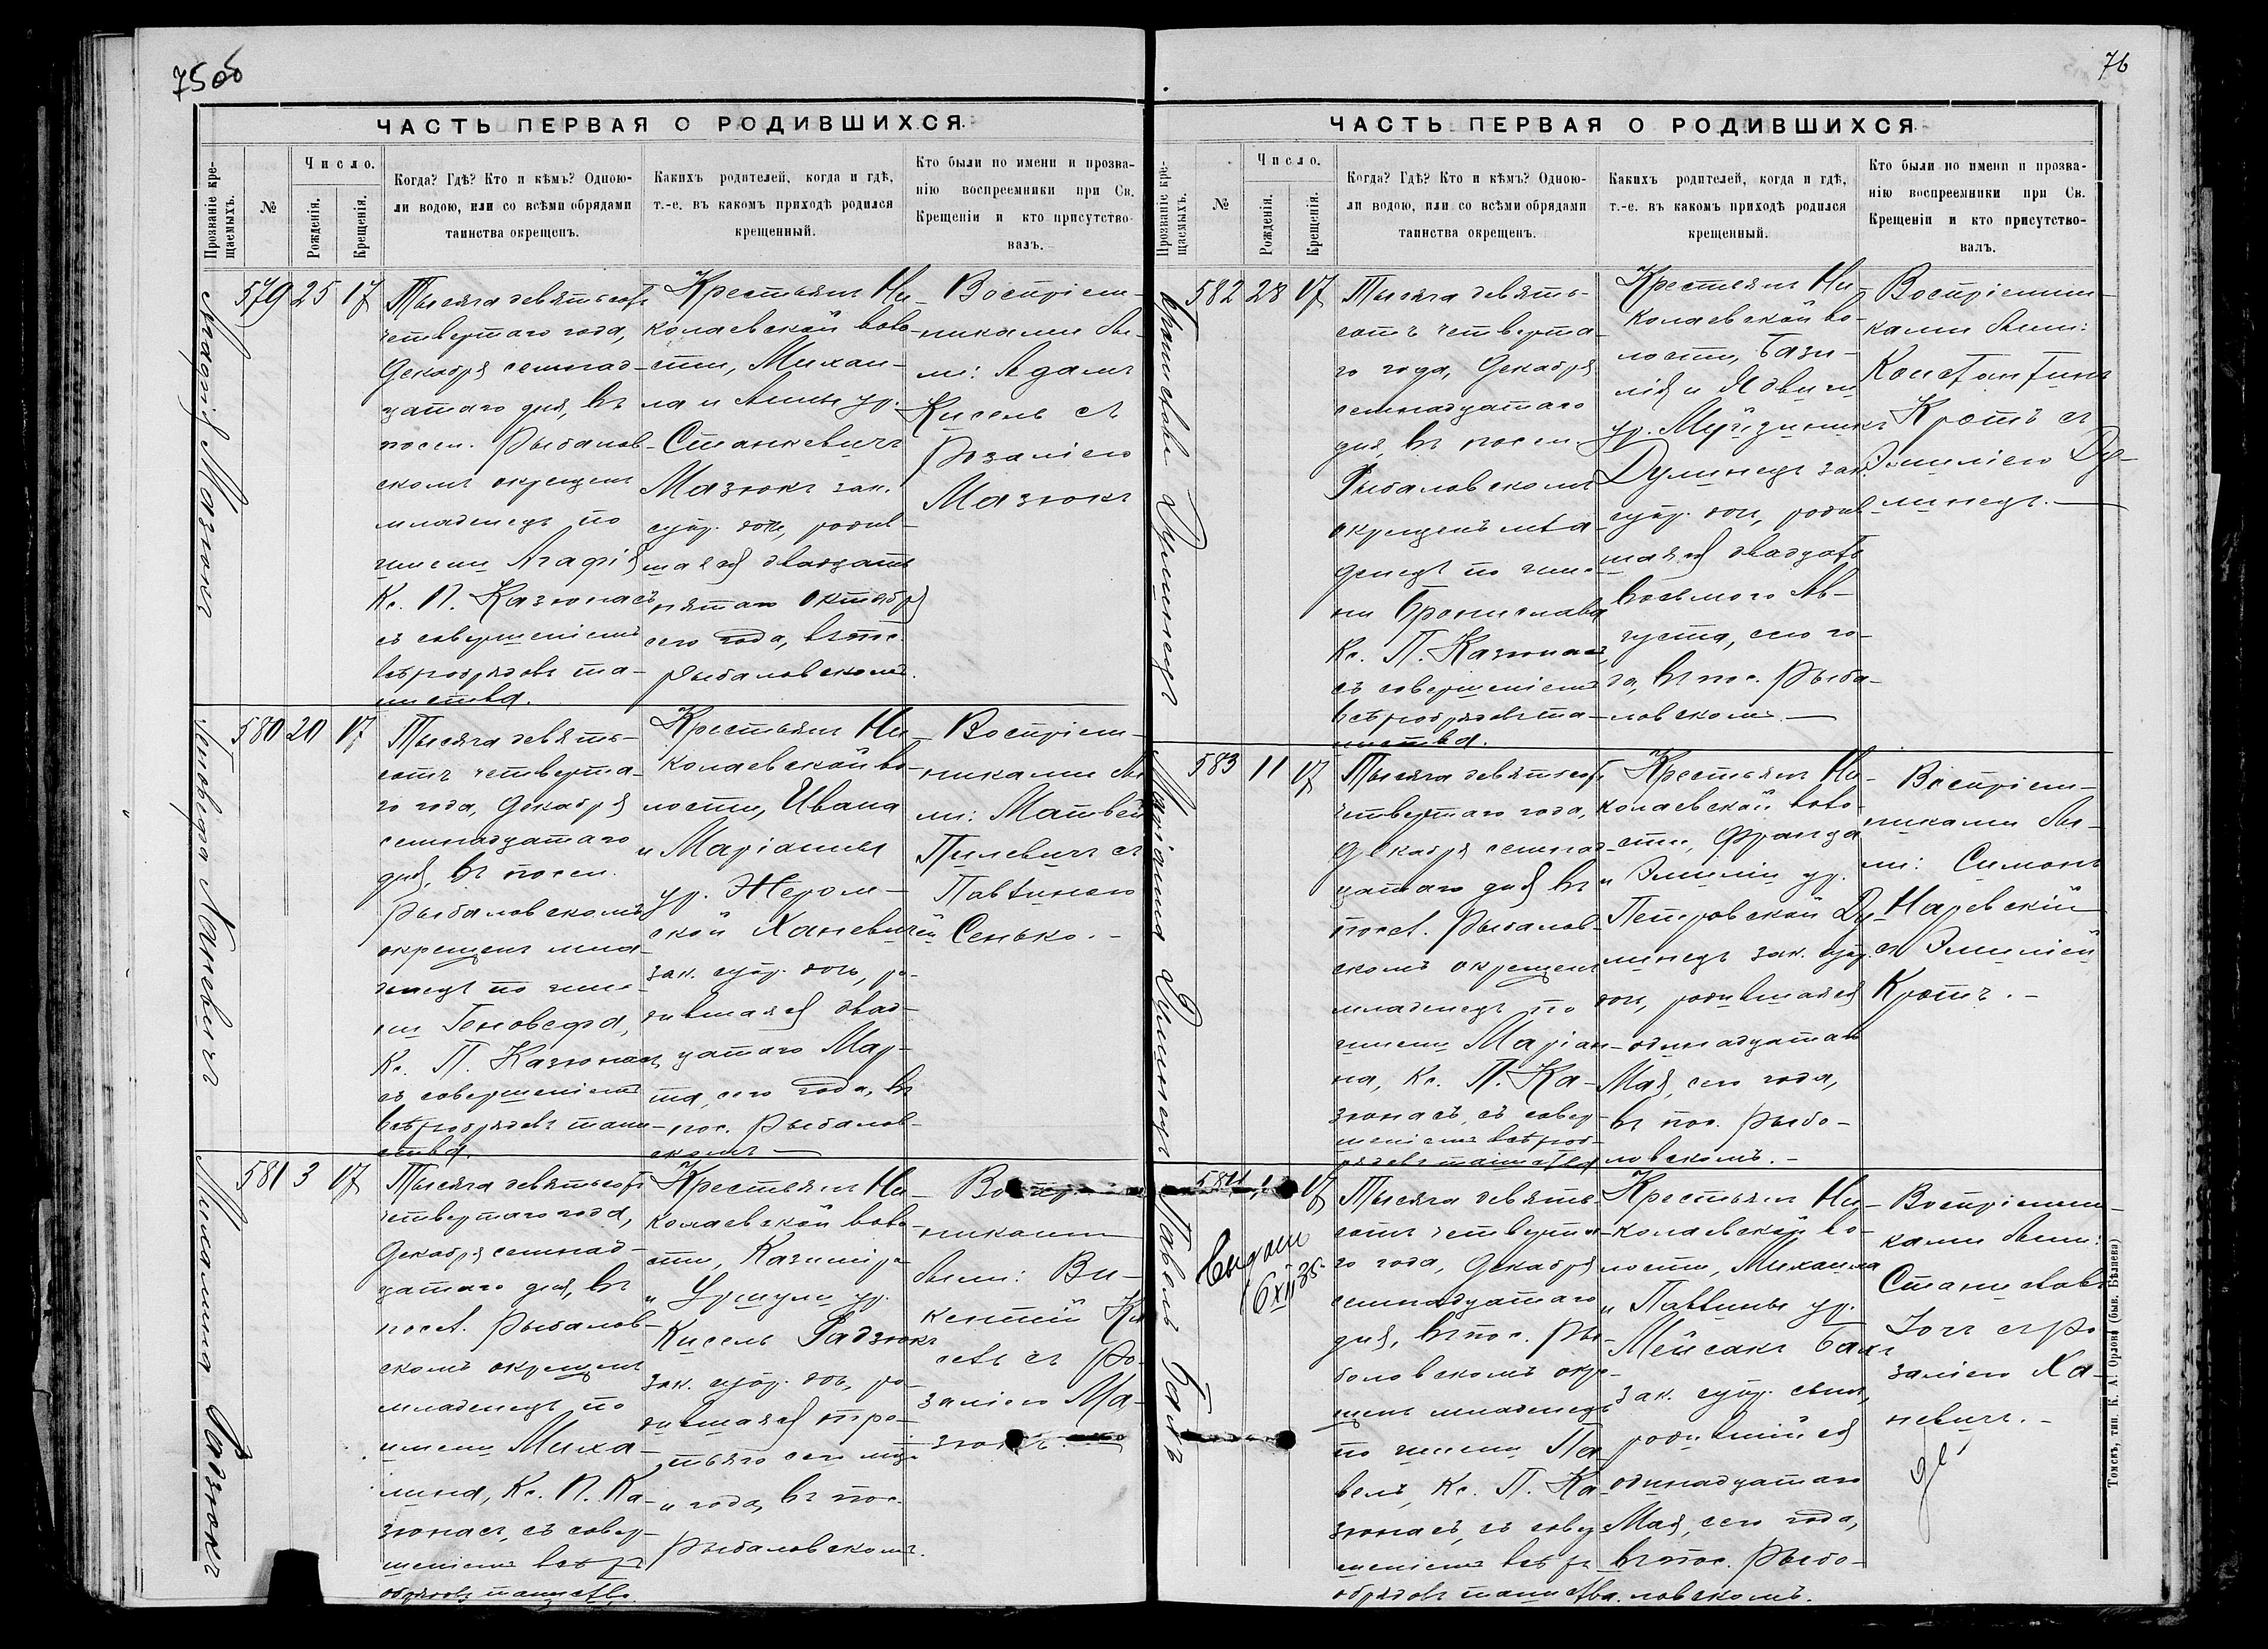 75об
ЧАСТЬ ПЕРВАЯ О РОДИВШИХСЯ.
Прозваніе кре-
щаемыхъ.
№
Число.
Рожденія.
Крещенія.
Когда? Гдѣ? Кто и кѣмъ? Одною-
ли водою, или со всѣми обрядами
таинства окрещенъ.
Какихъ родителей, когда и гдѣ,
т.-е. въ какомъ приходѣ родился
крещенный.
Кто были по имени и прозва-
нію воспреемники при Св.
Крещеніи и кто присутство-
валъ.
Агафія Мазюкъ
579 25 17
Тысяча девятьсотъ
четвертаго года,
Декабря семнад-
цатаго дня, въ
посел. Рыбалов-
скомъ окрещенъ
младенецъ по
имени Агафія
Кс. П. Казюнасъ
съ совершеніемъ
всѣхъ обрядовъ та-
инства.
Крестьянъ Ни-
колаевской воло-
сти, Михаи-
ла и Анны ур.
Станкевичъ
Мазюкъ зак.
супр. дочь, родив-
шаяся двадцать
пятаго Октября
сего года, въ пос.
Рыбаловскомъ.
Воспріем-
никами бы-
ли: Адамъ
Кисель съ
Розаліею
Мазюкъ
Геновефа Ханевичъ
580 20 17
Тысяча девять-
сотъ четверта-
го года, Декабря
семнадцатаго
дня, въ посел.
Рыбаловскомъ
окрещенъ мла-
денецъ по име-
ни Геновефа,
Кс. П. Казюнасъ
съ совершеніемъ
всѣхъ обрядовъ таин-
ства.
Крестьянъ Ни-
колаевской во-
лости, Ивана
и Маріанны
ур. Жером-
ской Ханевичей
зак. супр. дочь, ро-
дившаяся двад-
цатаго Мар-
та, сего года, въ
пос. Рыбалов-
скомъ
Воспріем-
никами бы-
ли: Матвей
Пилевичъ съ
Павлиною
Сенько.
Михалина Радзюкъ
581 3 17
Тысяча девятьсотъ
четвертаго года,
Декабря семнад-
цатаго дня, въ
посел. Рыбалов-
скомъ окрещенъ
младенецъ по
имени Миха-
лина, Кс. П. Ка-
зюнасъ, съ совер-
шеніемъ всѣхъ
обрядовъ таинства.
Крестьянъ Ни-
колаевской воло-
сти, Казиміра
и Уршули ур.
Кисель Радзюкъ
зак. супр. дочь, ро-
дившаяся тре-
тьяго сего мѣс.
и года, въ пос.
Рыбаловскомъ.
никами
были: Ви-
кентій
съ Ро-
заліею Ма-
зюкъ.
76
ЧАСТЬ ПЕРВАЯ О РОДИВШИХСЯ
Прозваніе кре-
щаемыхъ.
№
Число.
Рожденія.
Крещенія.
Когда? Гдѣ? Кто и кѣмъ? Одною-
ли водою, или со всѣми обрядами
таинства окрещенъ.
Какихъ родителей, когда и гдѣ,
т.-е. въ какомъ приходѣ родился
крещенный.
Кто были по имени и прозва-
нію воспреемники при Св.
Крещеніи и кто присутство-
валъ.
Бранислава Дулинецъ
582 28 17
Тысяча девять-
сотъ четверта-
го года, Декабря
семнадцатаго
дня, въ посел.
Рыбаловскомъ
окрещенъ мла-
денецъ по име-
ни Бронислава
Кс. П. Казюнасъ,
съ совершеніемъ
всѣхъ обрядовъ та-
инства.
Крестьянъ Ни-
колаевской во-
лости, Бази-
лія и Ядвиги
ур.
Дулинецъ зак.
супр. дочь, родив-
шаяся двадцать
восьмого Ав-
густа, сего го-
да, въ пос. Рыба-
ловскомъ.
Воспріемни-
ками были:
Константинъ
Кротъ съ
Эмиліею Ду-
линецъ.
Маріанна Дулинецъ
583 11 17
Тысяча девятьсотъ
четвертаго года,
Декабря семнад-
цатаго дня въ
посел. Рыбалов-
скомъ окрещенъ
младенецъ по
имени Маріан-
на, Кс. П. Ка-
зюнасъ, съ совер-
шеніемъ всѣхъ об-
рядовъ таинства
Крестьянъ Ни-
колаевской воло-
сти, Франца
и Эмиліи ур.
Петровской Ду-
линецъ зак. супр.
дочь, родившаяся
одинадцатаго
Мая, сего года,
въ пос. Рыбо-
ловскомъ.
Воспріем-
никами бы-
ли: Симонъ
Наревскій
съ Эмиліей
Кротъ.
Павелъ Бакъ
584 17
Выдан
6 XII 35.
Тысяча девять-
сотъ четверта-
го года, Декабря
семнадцатаго
дня, въ пос. Ры-
боловскомъ окре-
щенъ младенецъ
по имени Па-
велъ, Кс. П. Ка-
зюнасъ, съ совер-
шеніемъ всѣхъ
обрядовъ таинства.
Крестьянъ Ни-
колаевской во-
лости, Михаила
и Павлины ур.
Мейсакъ Бакъ
зак. супр. сынъ,
родившійся
одинадцатаго
Мая, сего года,
въ пос. Рыбо-
ловскомъ.
Воспріемни-
ками были:
Станиславъ
съ Ро-
заліею Ха-
невичъ.
Томскъ, тип. К. А. Орлова (быв. Бѣляева)